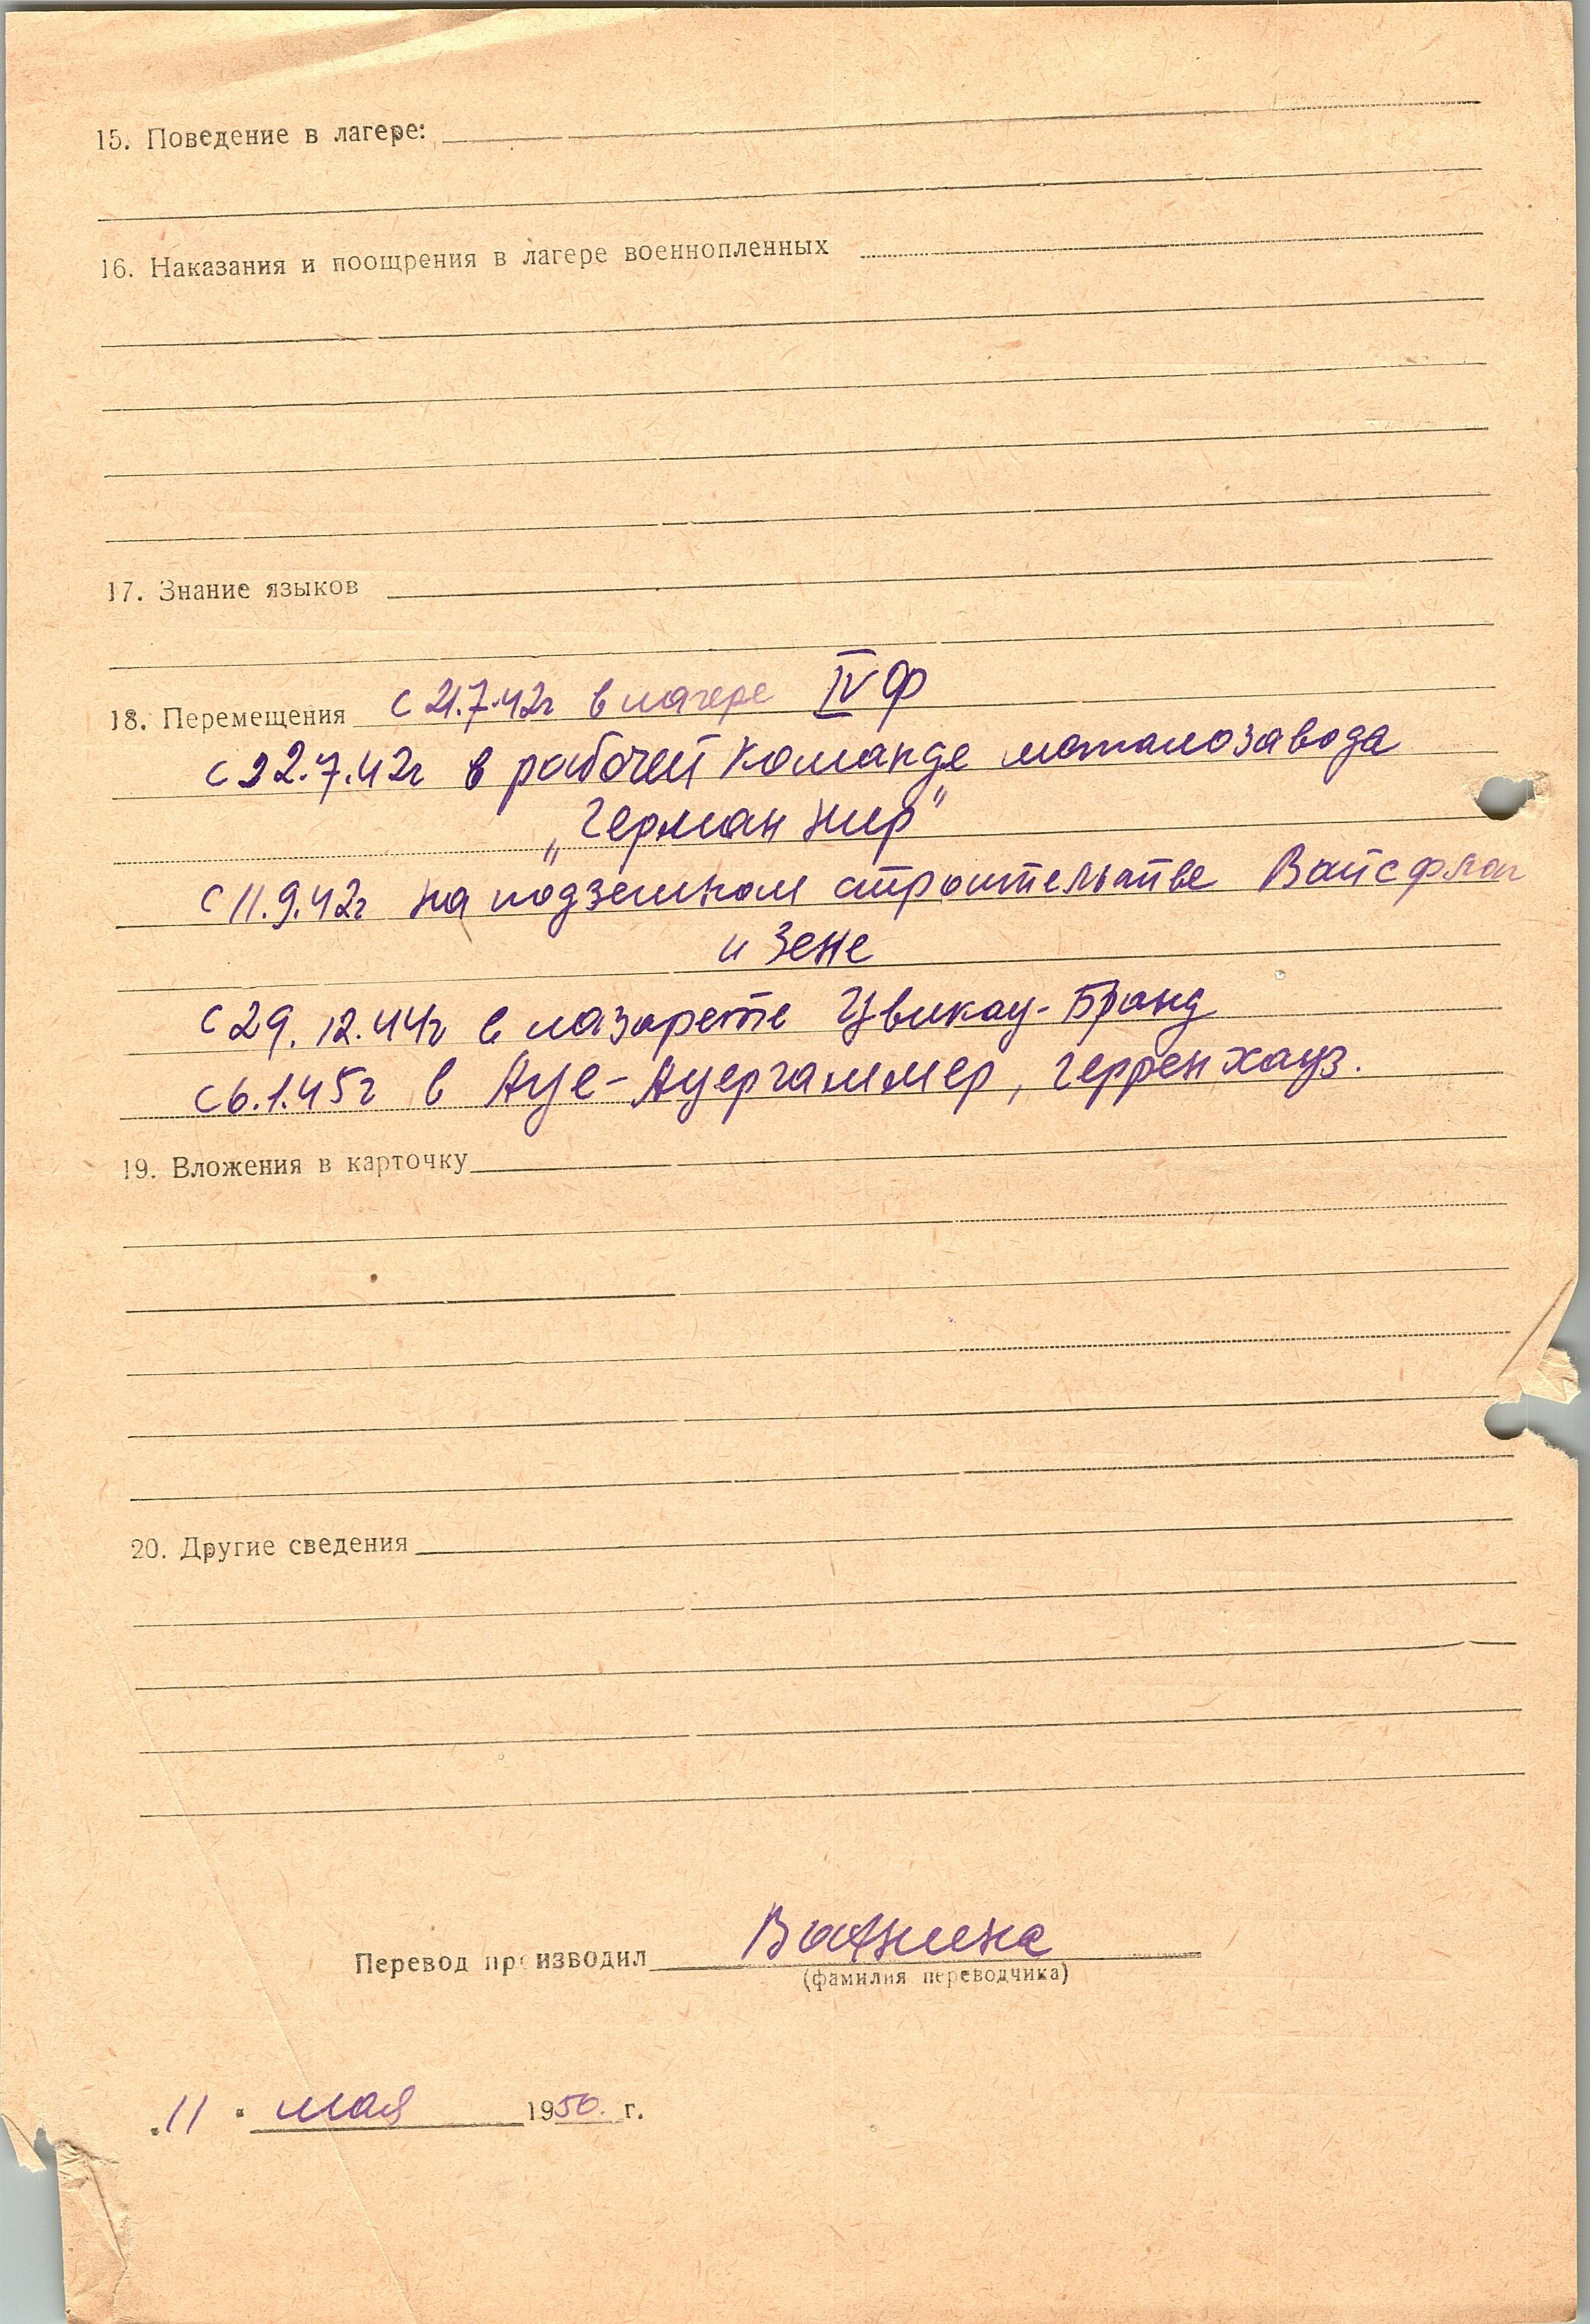 15. Поведение в лагере:
16. Наказания и поощрения в лагере военнопленных
17. Знание языков
18. Перемещения с 21.7.42г в лагере IV Ф
с 22.7.42г в рабочей команде металозавода
„Герман Нир"
с 11.9.42г на подземном строительстве Вайсфлог
и Зене
с 29.12.44г в лазарете Цвикау-Бранд
с 6.1.45г в Ауе-Ауергаммер, Герренхауз.
19. Вложения в карточку
20. Другие сведения
Перевод производил
(фамилия переводчика)
„11" мая 1950 г.